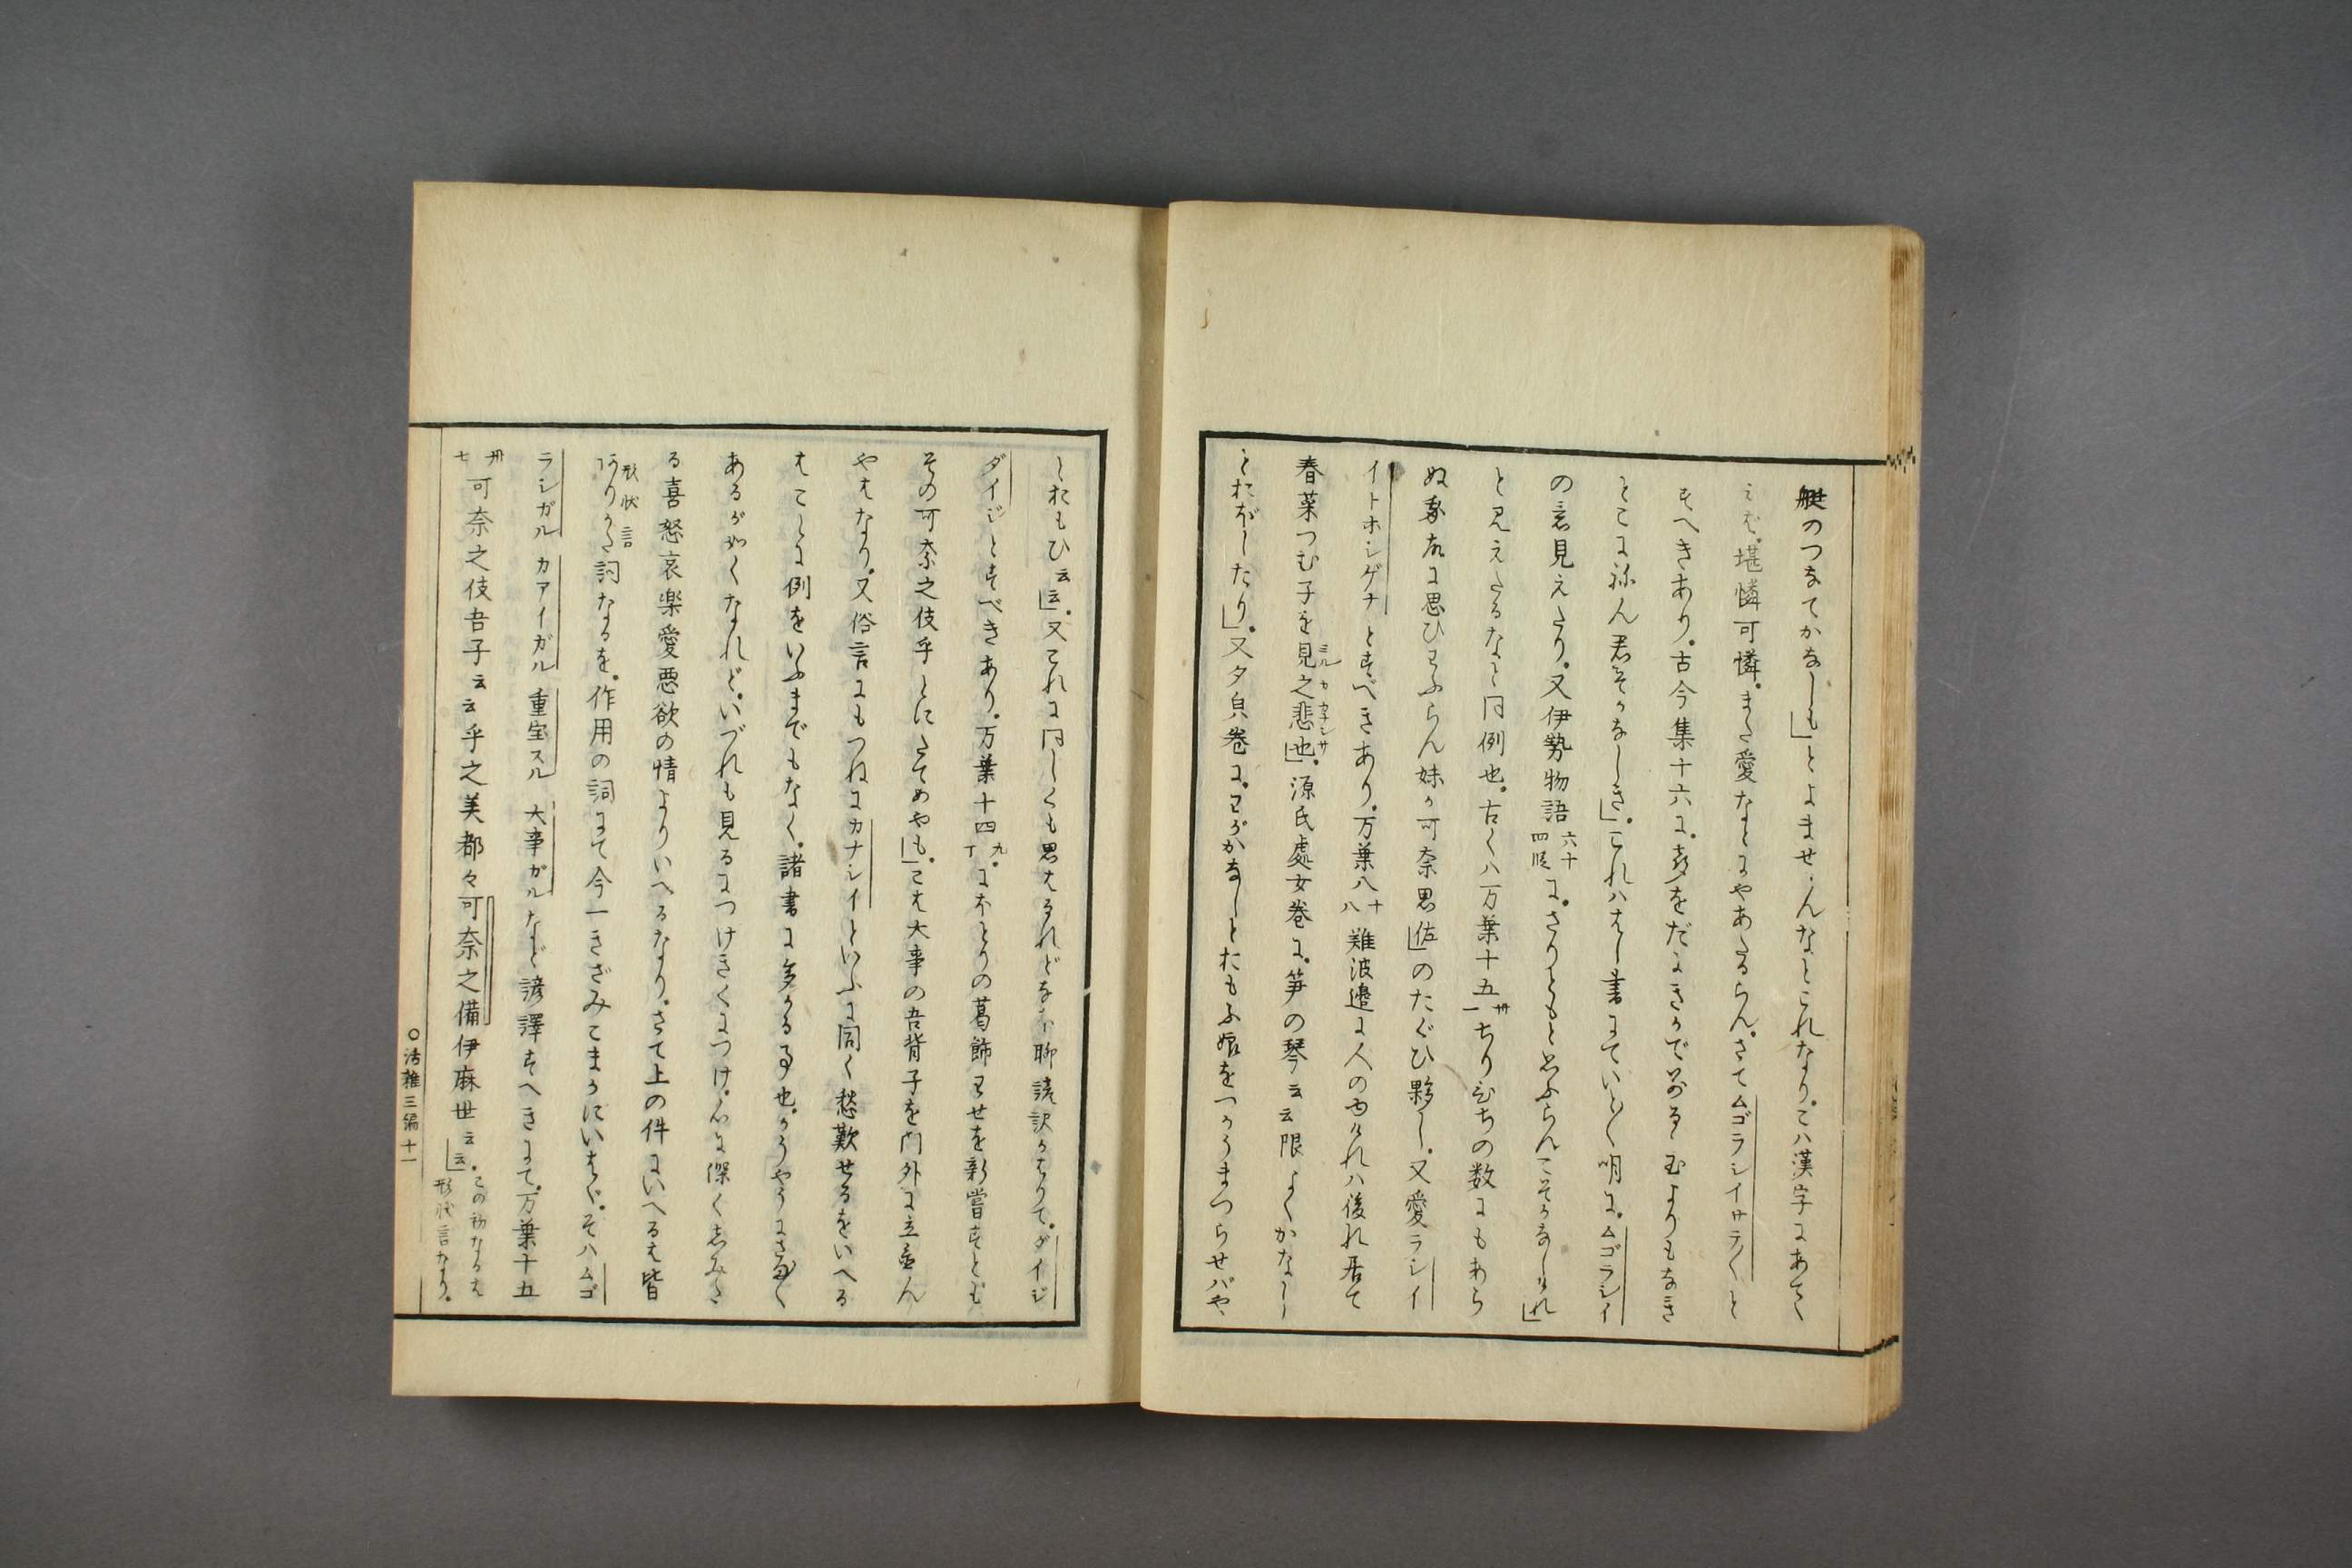 艇のつなてかなしも」とよませ、んなとこれなり。こハ漢字にあてく
えば。堪憐可憐。また愛なとにやあたるらん。さてムゴラシイサラ〳〵と
すへきあり。古今集十六に。声をだにきかでわかるゝ玉よりもなき
とこに祢ん君そかなしき」。これハはし書にていと〳〵明に。ムゴラシイ
の意見えたり。又伊勢物語六十四段に。さりともと思ふらんこそかなしけれ」
と見えたるなと同例也。古くハ万葉十五卅一ちりひちの数にもあら
ぬ我故に思ひわふらん妹か可奈思佐」のたぐひ夥し。又愛ラシイ
イトホシゲナとすべきあり。万葉八十八難波邊に人の行けれハ後れ居て
春菜つむ子を見之悲也」。源氏處女巻に。箏の琴云云限よくかなしし
とおぼしたり」。又夕皃巻に。わがかなしとおもふ娘をつかうまつらせバや、
とおもひ云云」。又これに同しくも思はるれどなほ聊諺訳かはりて。ダイジ
ダイジとすべきあり。万葉十四九丁。にほとりの葛飾わせを新嘗すとも
その可奈之伎乎とにたてめや」も。こは大事の吾背子を門外に立並ん
やはなり。又俗言にもつねにカナシイといふに同く愁歎せるをいへる
はことに例をいふまでもなく。諸書に多かる事也。かうやうにさま〴〵
あるが如くなれど。いづれも見るにつけきくにつけ。心に深くしみた
る喜怒哀楽愛悪欲の情よりいへるなり。さて上の件にいへるは皆
形状言ありかた詞なるを。作用の詞にて今一きざみこまかにいはゞ。そハムゴ
ラシガル カアイガル 重宝スル 大事ガルなど諺譯すへきにて。万葉十五
卅七可奈之伎吾子云云乎之美都々可奈之備伊麻世云云」。この初なるは形状言なり。
〇活雑三編 十一